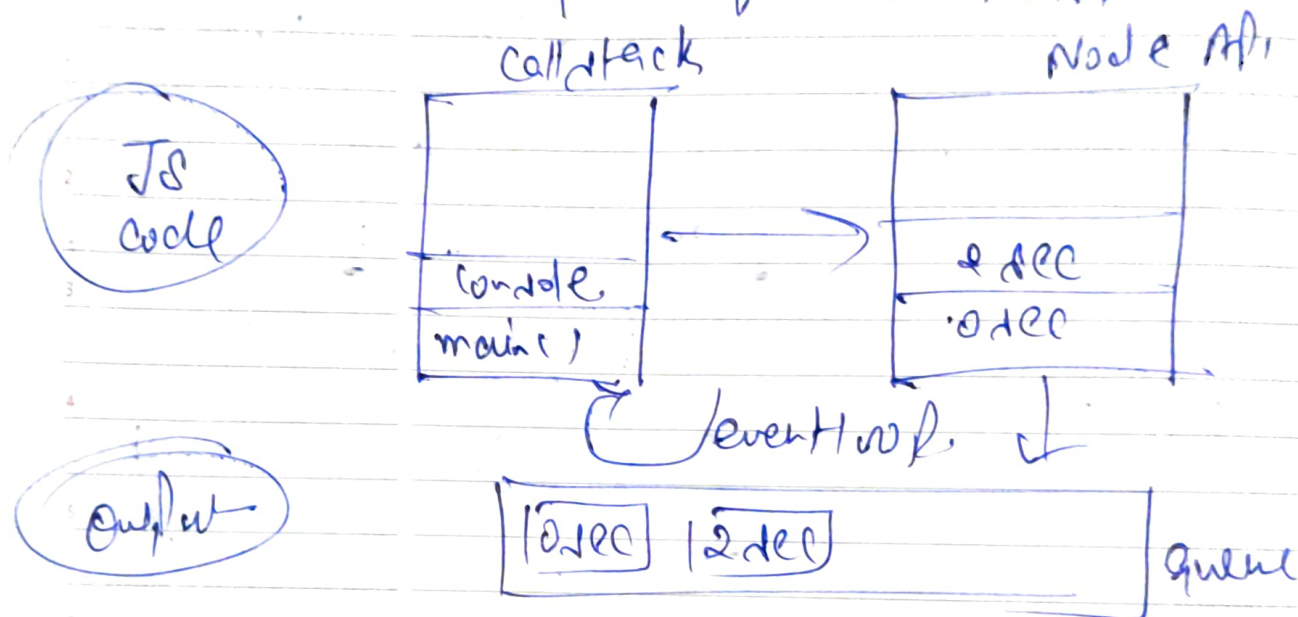 Callstack
Node API
JS
code
console
main()
2 sec
0 sec
event loop.
Output
0sec 2sec
queue